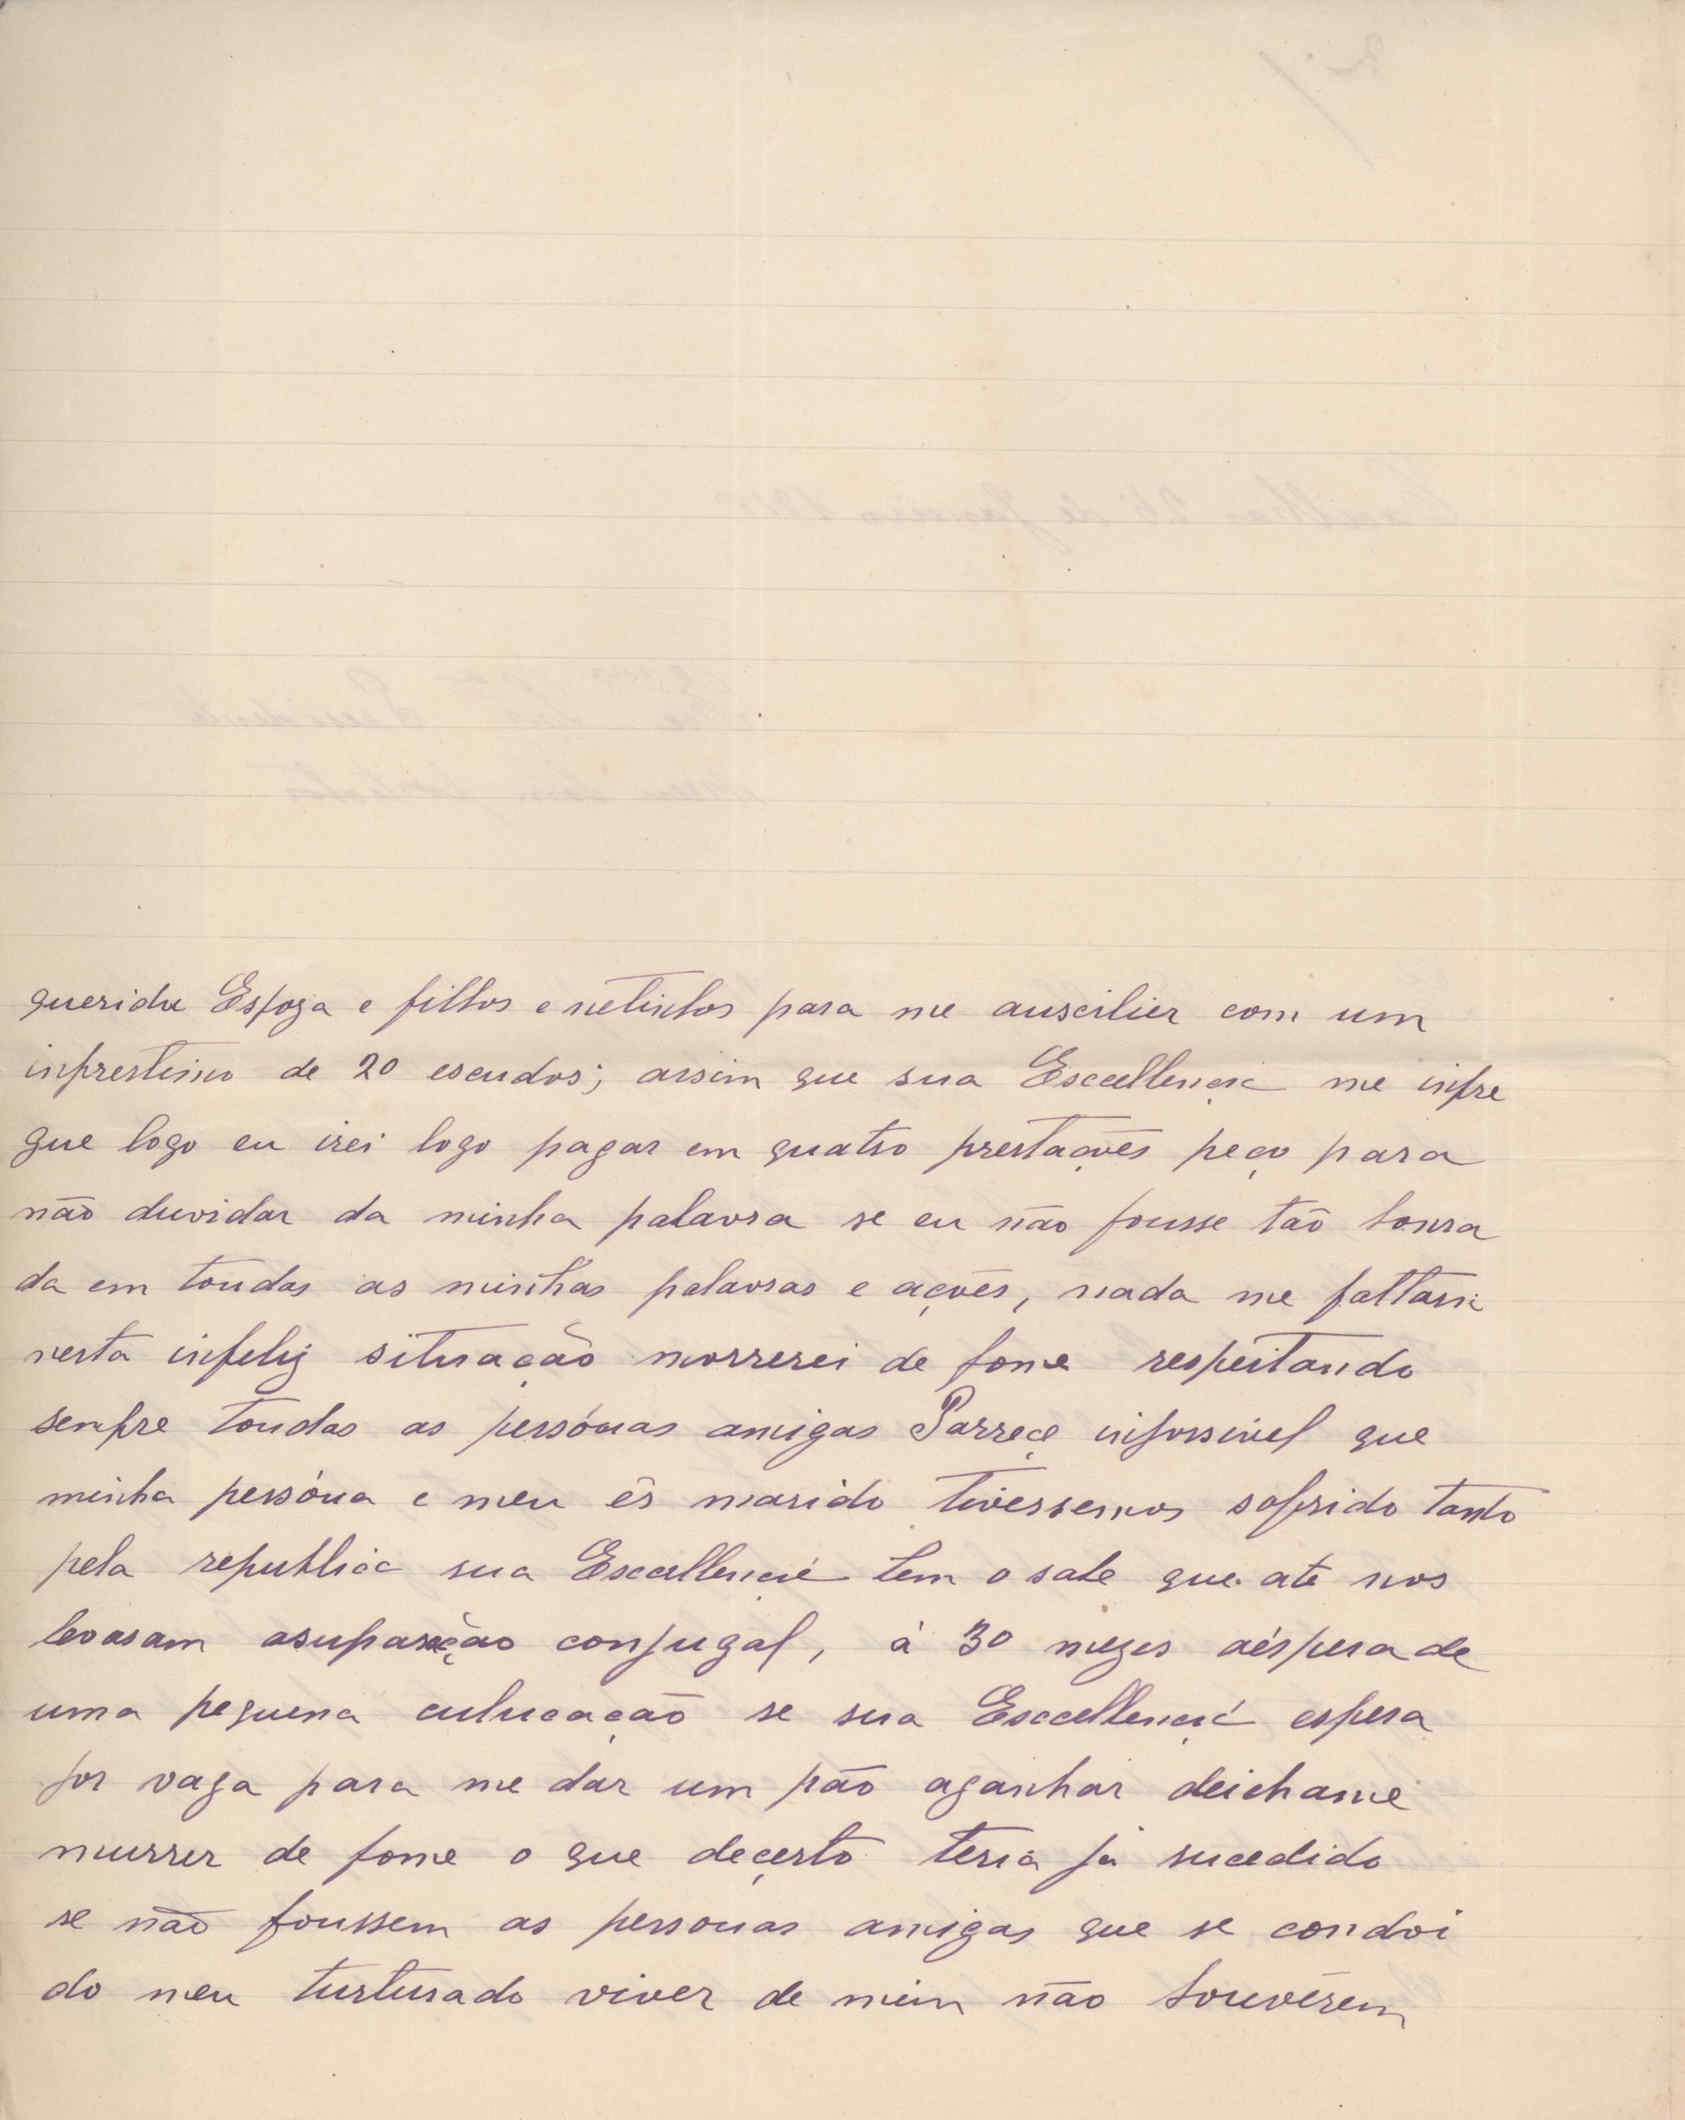 querida Espoza e filhos e netinhos para me auscilier com um
inprestimo de 20 escudos; assim que sua Escellencia me inpre
gue logo eu irei logo pagar em quatro prestações peço para
não duvidar da minha palavra se eu não fousse tão honra
da em toudas as minhas palavras e ações, nada me faltaria
nesta infeliz situação morrerei de fome respeitando
senpre toudas as persónas amigas Parreçe inpossivel que
minha persóna e meu és marido tivessemos sofrido tanto
pela republica sua Escellencia tem o sabe que até nos
levaram asuparação conjugal, á 30 mezes aéspera de
uma pequena culucação se sua Esccellencia espera
por vaga para me dar um pão aganhar deichame
murrer de fome o que deçerto teria já sucedido
se não foussem as personas amigas que se condoi
do meu turturado viver de mim não houvérem